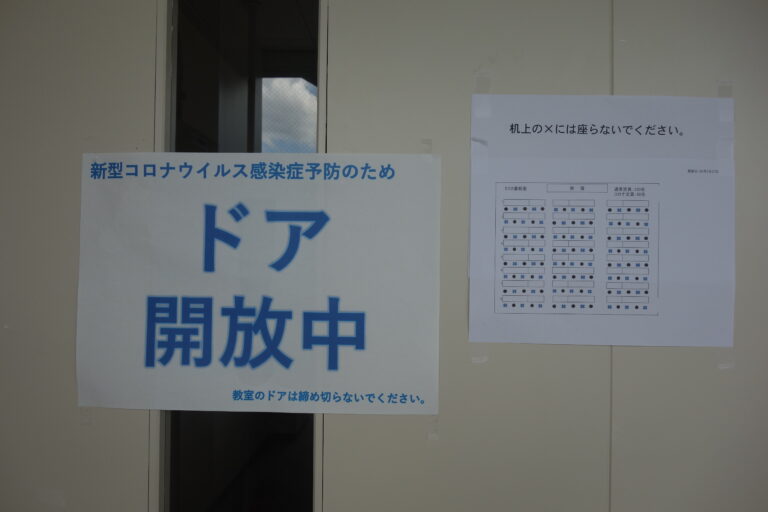 新型コロナウイルス感染症予防のため
ドア
開放中
教室のドアは締め切らないでください。
机上の×には座らないでください。